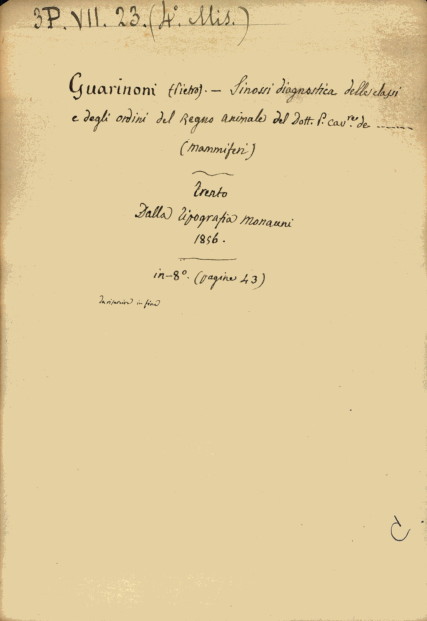 3P. VII. 23. (4° Mis.)
Guarinoni (Pietro). — Sinossi diagnostica delle classi
e degli ordini del Regno animale del Dott. P. cav.re de ———
(Mammiferi)
Trento
Dalla Tipografia Monauni
1856.
in-8°. (pagine 43)
in fine